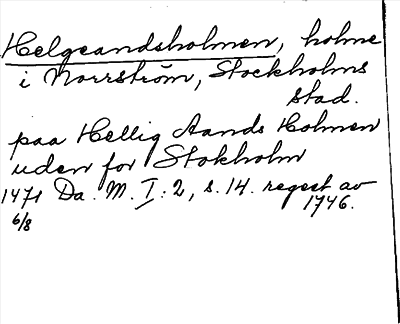 Helgeandsholmen, holme
i Norrström, Stockholms
stad.
paa Hellig Aands Holmen
uden for Stokholm
1471 Da. M. I: 2, s. 14. regest av
6/8 1746.